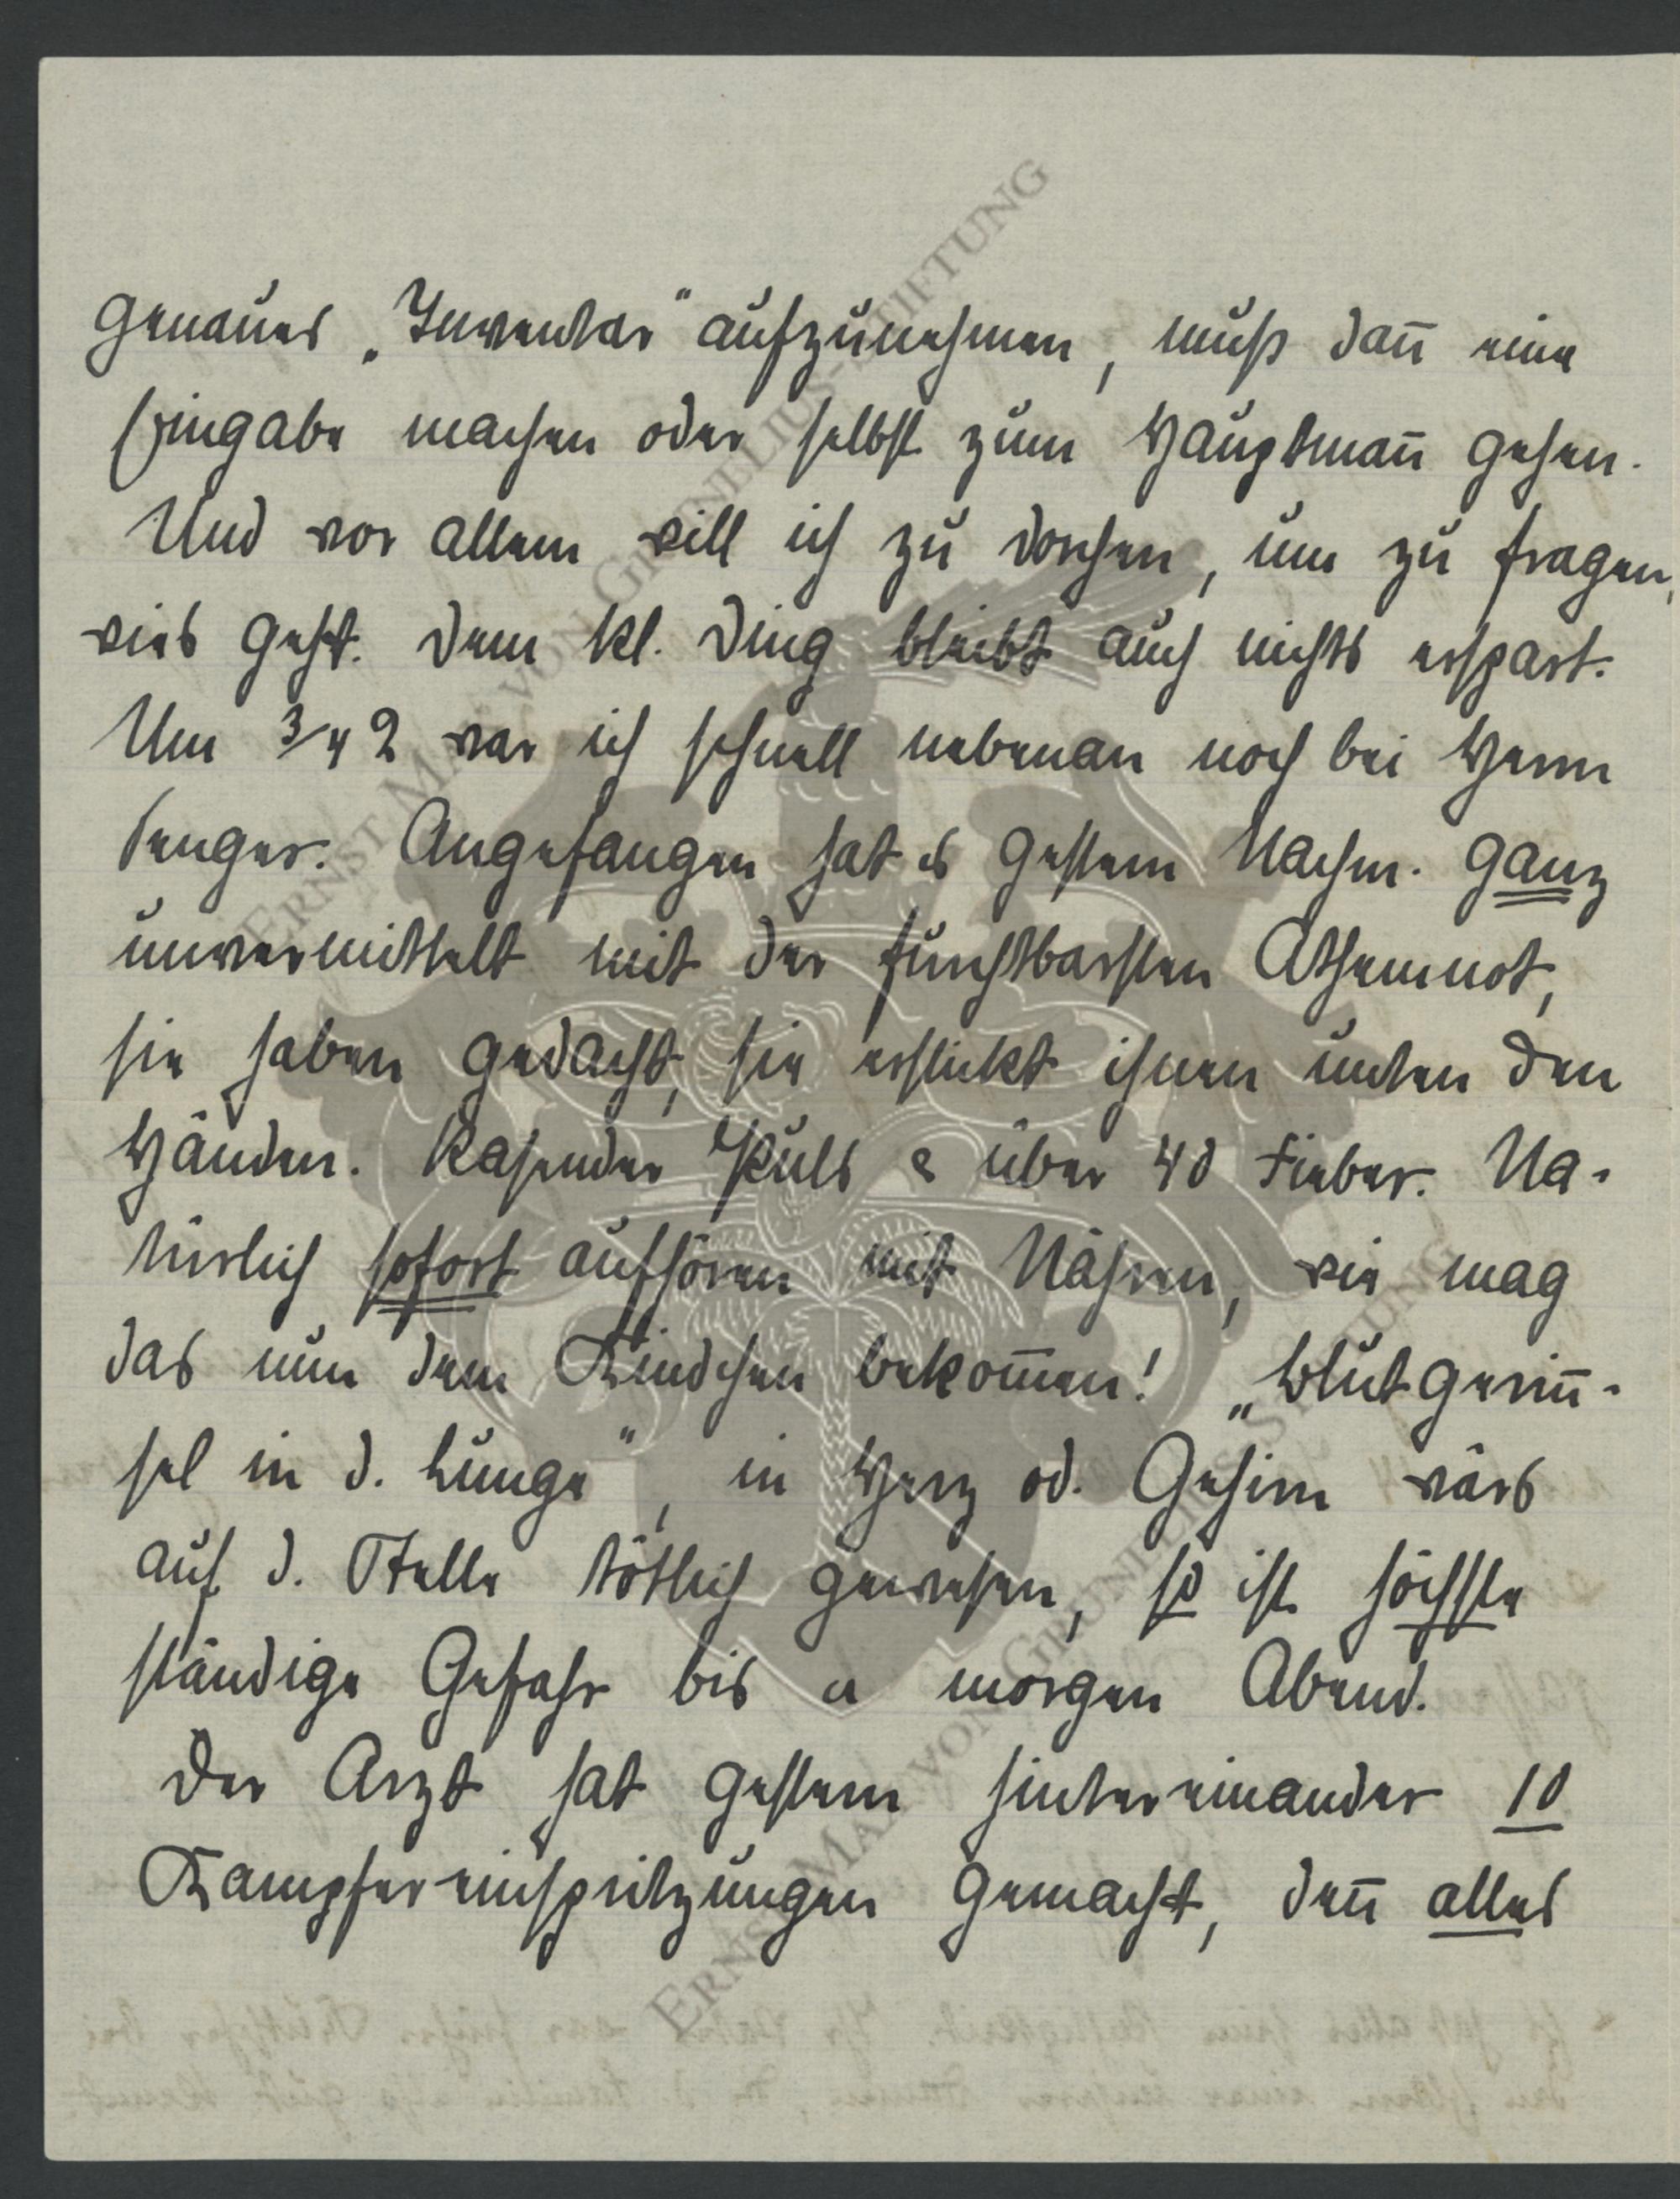 genaues „Inventar" aufzunehmen, muß dan̅ eine
Eingabe machen oder selbst zum Hauptman̅ gehen.
Und vor allem will ich zu Dorchen, um zu fragen,
wies geht. Dem kl. Ding bleibt auch nichts erspart.
Um 3/4 2 war ich schnell nebenan noch bei Herrn
Senger. Angefangen hat es gestern Nachm. ganz
unvermittelt mit der furchtbarsten Athemnot,
sie haben gedacht, sie erstickt ihnen unter den
Händen. Rasender Puls & über 40 Fieber. Na-
türlich sofort aufhören mit Nähren, wie mag
das nun dem Kindchen bekom̅en! „Blutgerin̅-
sel in d. Lunge", in Herz od. Gehirn wärs
auf d. Stelle tötlich gewesen, so ist höchste
ständige Gefahr bis morgen Abend.
Der Arzt hat gestern hintereinander 10
Kampfereinspritzungen gemacht, den̅ alles
ERNST MAX VON GRUNELIUS-STIFTUNG
ERNST MAX VON GRUNELIUS-STIFTUNG